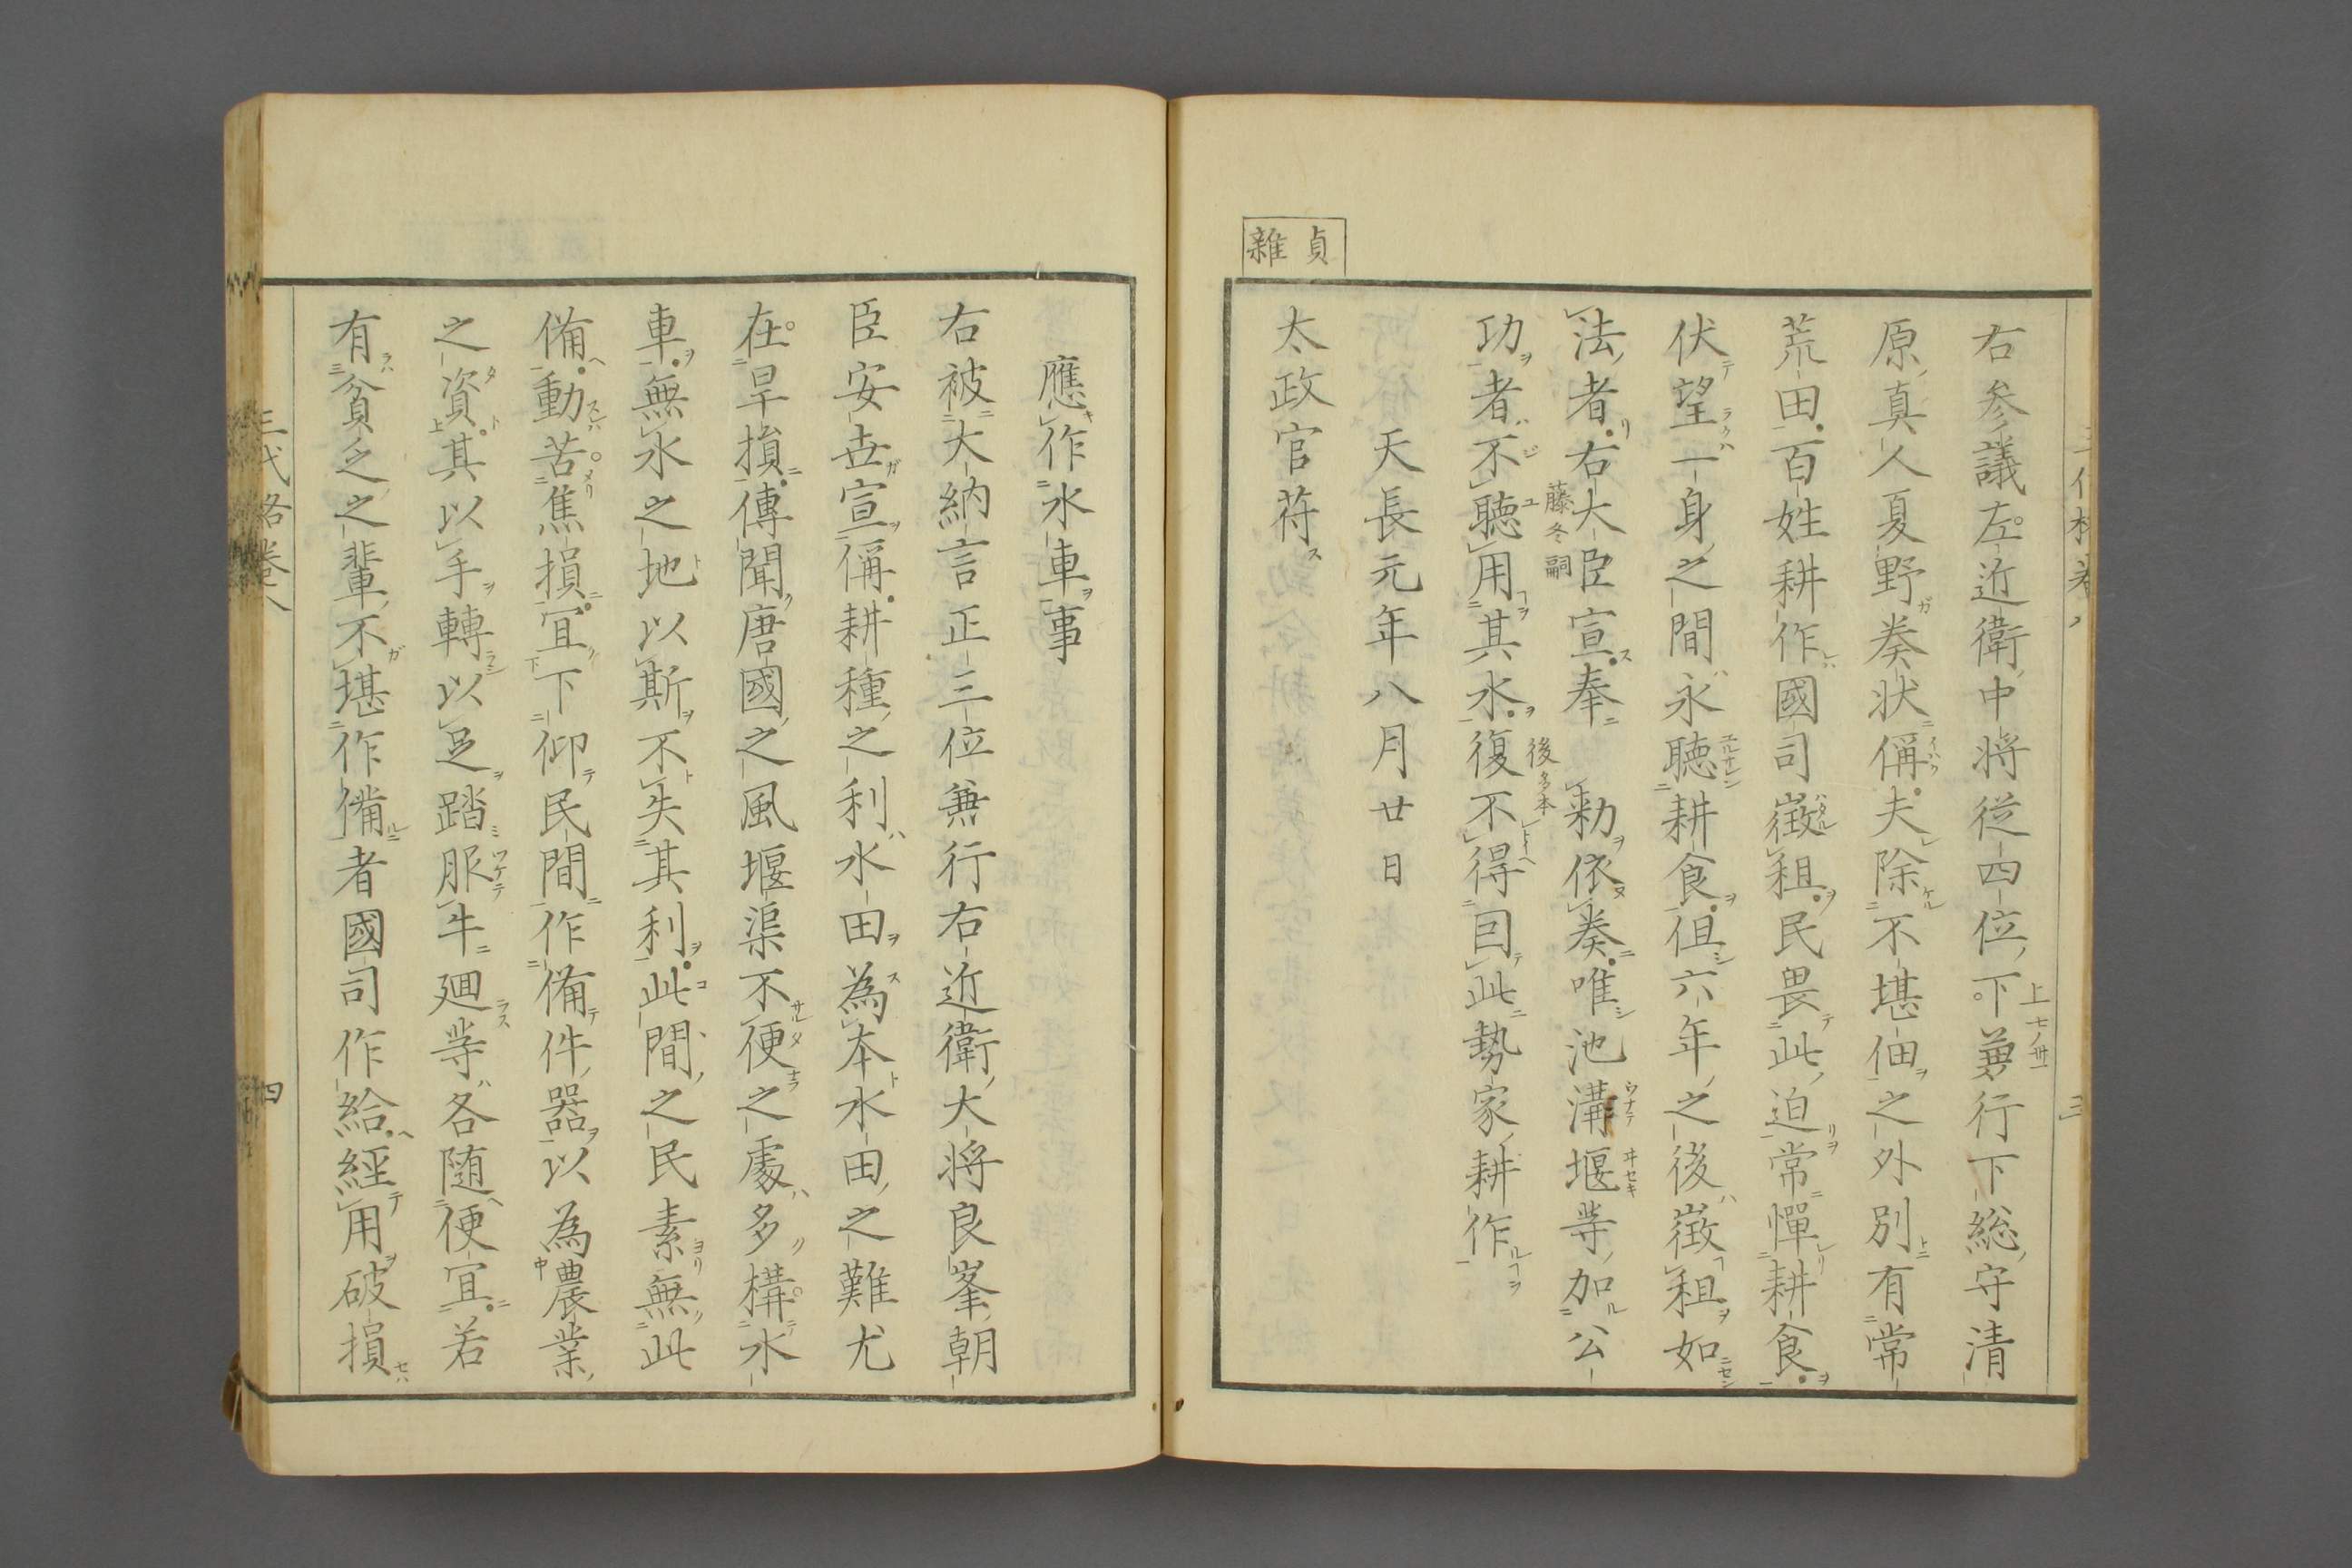 貞雜
右参議左近衛中将従四位下兼行下総守清
原真人夏野奏状偁夫除不堪佃之外別有常
荒田百姓耕作國司徴租民畏此迫常憚耕食
伏望一身之間永聴耕食但六年之後徴租如
法者右大臣宣奉　勅依奏唯池溝堰等加公
藤冬嗣
功者不聴用其水復不得回此勢家耕作
後多本
天長元年八月廿日
太政官苻
應作水車事
右被大納言正三位兼行右近衛大将良峯朝
臣安世宣偁耕種之利水田為本水田之難尤
在旱損傳聞唐國之風堰渠不便之處多構水
車無水之地以斯不失其利此間之民素無此
備動苦焦損宜下仰民間作備件器以為農業
之資其以手轉以足踏服牛廻等各随便宜若
有貧乏之輩不堪作備者國司作給經用破損
三代格巻八
四